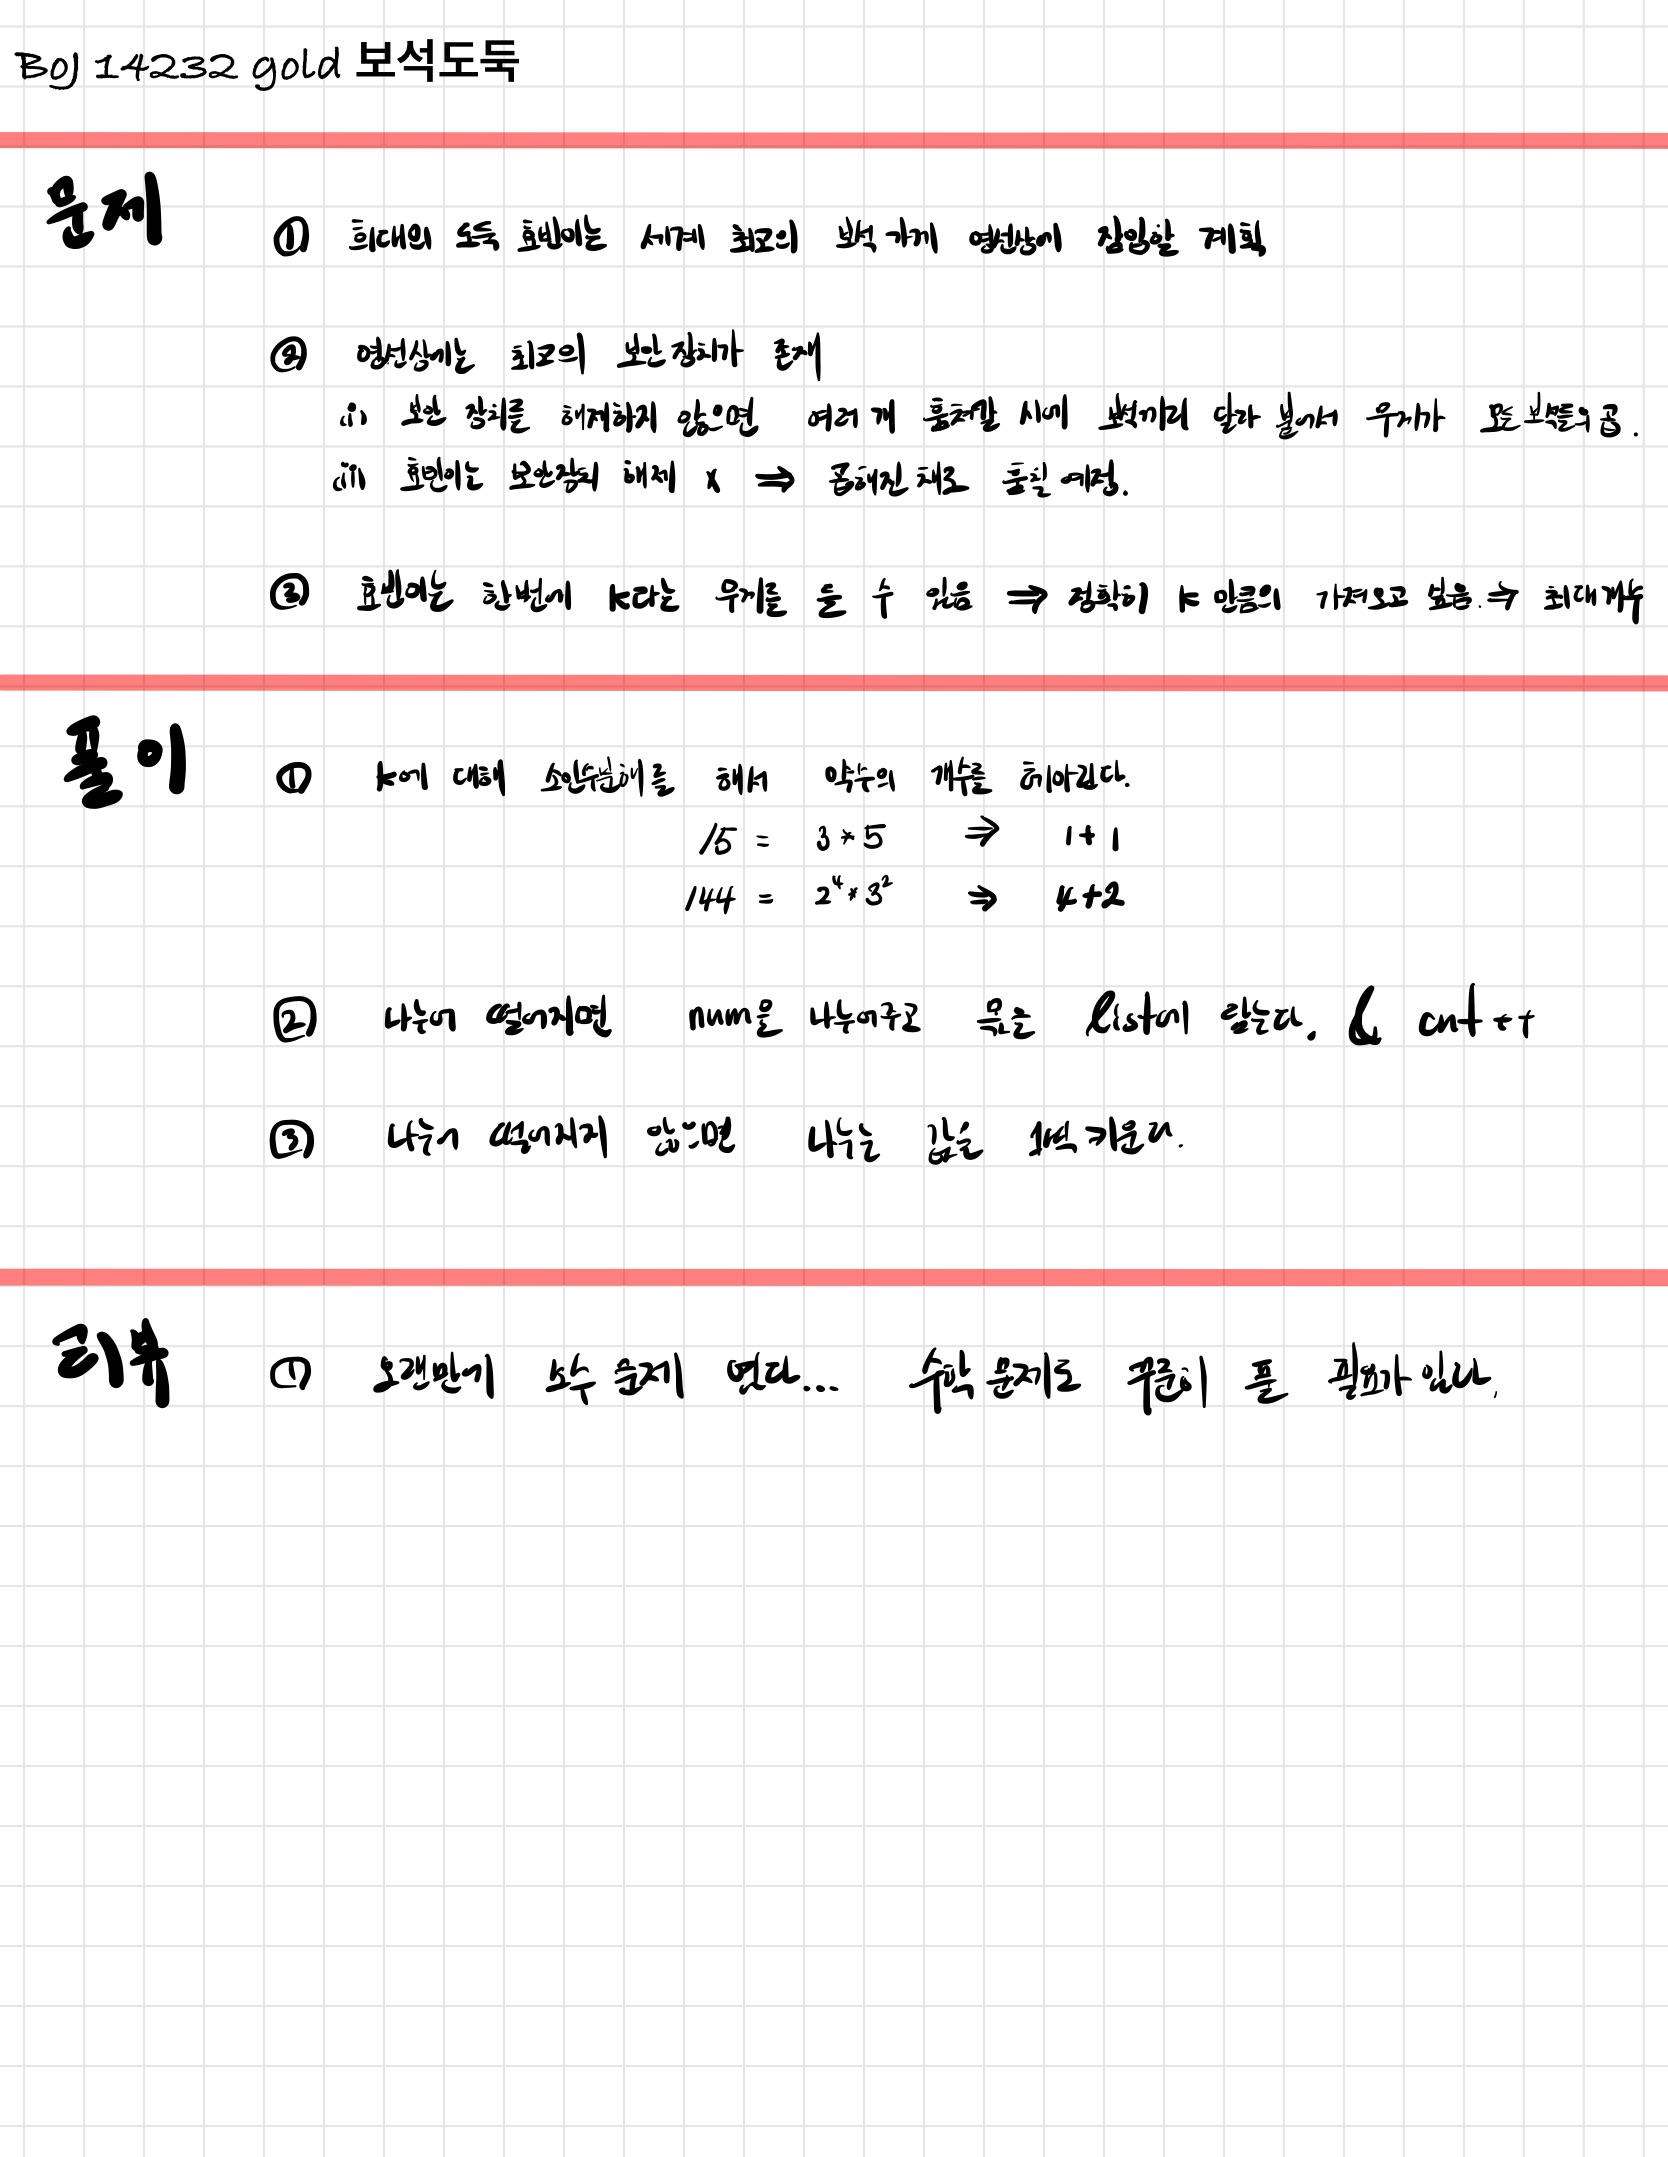 BOJ 14232 gold 보석도둑
문제
① 희대의 도둑 효빈이는 세계 최고의 보석 가게 영선상에 잠입할 계획
② 영선상에는 최고의 보안 장치가 존재
(i) 보안 장치를 해제하지 않으면 여러 개 훔쳐갈 시에 보석끼리 달라 붙어서 무게가 모든 보석들의 곱.
(ii) 효빈이는 보안장치 해제 x ⇒ 곱해진 채로 훔칠 예정.
③ 효빈이는 한번에 k라는 무게를 들 수 있음 ⇒ 정확히 k 만큼의 가져오고 싶음. ⇒ 최대 개수
풀이
① k에 대해 소인수분해를 해서 약수의 개수를 헤아린다.
15 = 3 * 5 ⇒ 1 + 1
144 = 2⁴ * 3² ⇒ 4 + 2
② 나누어 떨어지면 num을 나누어주고 몫을 list에 담는다. & cnt ++
③ 나누어 떨어지지 않으면 나누는 값을 1씩 키운다.
리뷰
① 오랜만에 소수 문제 였다... 수학 문제도 꾸준히 풀 필요가 있다.